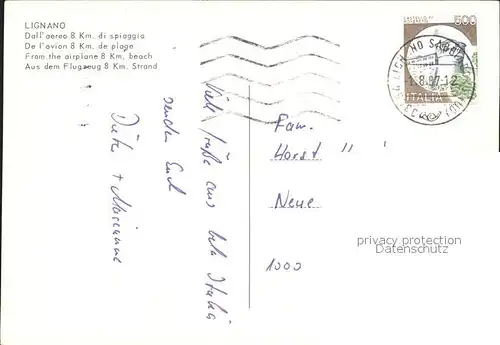 LIGNANO
Dall'aereo 8 Km. di spiaggia
De l'avion 8 Km. de plage
From the airplane 8 Km. beach
Aus dem Flugzeug 8 Km. Strand
500
ITALIA
LIGNANO SABBIADORO
-1.8.87-12
33054
(UD)
Viele Grüße aus bela Italia
senden Euch
Dieter + Marianne
Fam.
Horst " "
Neue
1000
privacy protection
Datenschutz